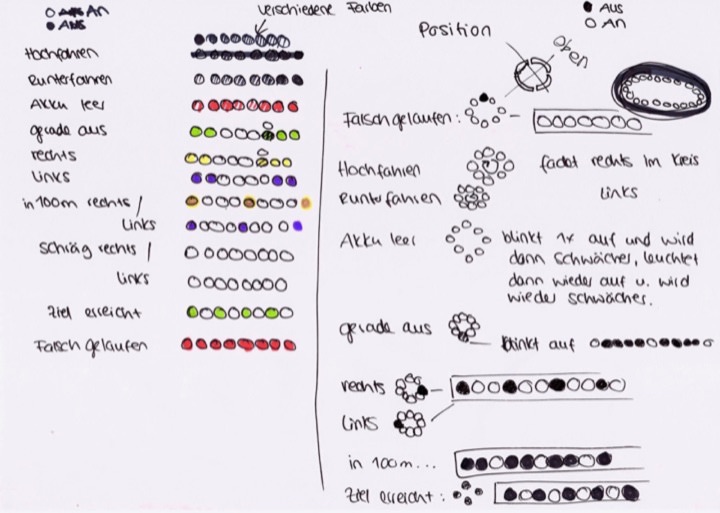 An
verschiedene Farben
Aus
An
Aus
Hochfahren
Runterfahren
Akku leer
gerade aus
rechts
Links
in 100m rechts /
Links
Schräg rechts /
Links
Ziel erreicht
Falsch gelaufen
Position
oben
Falsch gelaufen:
Hochfahren
fadet rechts im Kreis
Runterfahren
Links
Akku leer
blinkt 1x auf und wird
dann schwächer, leuchtet
dann wieder auf u. wird
wieder schwächer.
gerade aus
blinkt auf
rechts
Links
in 100m...
Ziel erreicht: